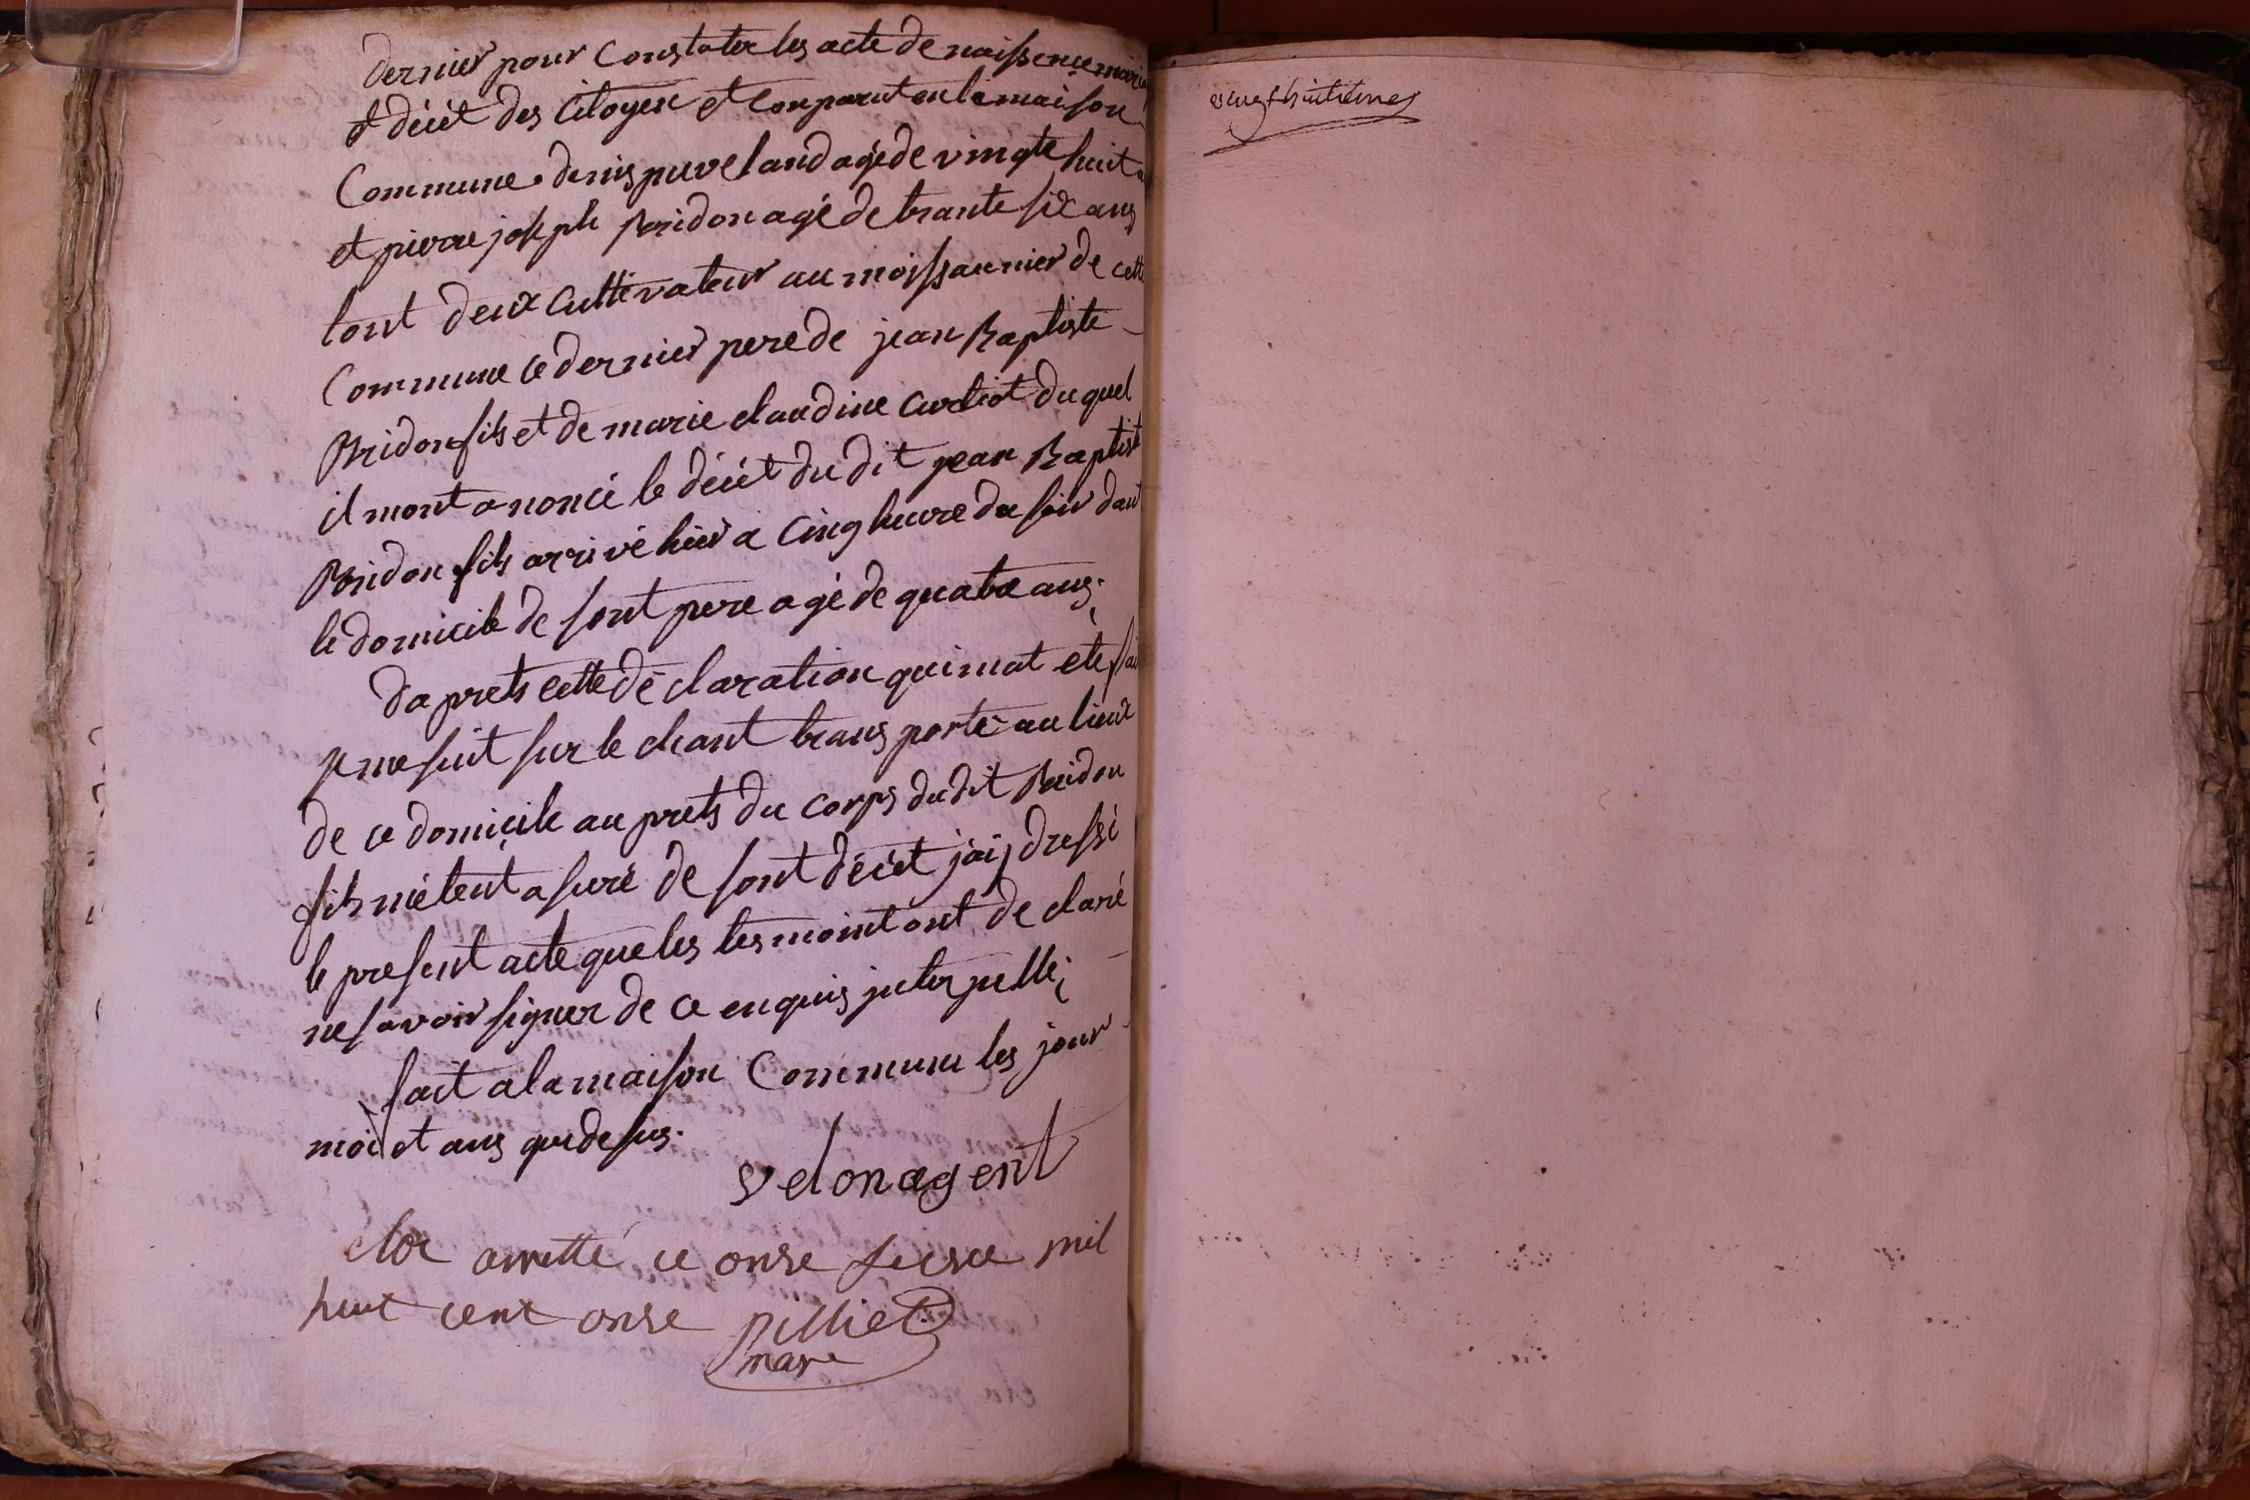 dernier pour Constater les acte de naissence mari
et décét des Citoyen et Comparut en la maison
Commune denis puveland agé de vingte huit a
et pierre joseph Bridon agé de trante six ans
tout deux Cultivateur au moissannier de cette
Commune ce dernier pere de jean Baptiste
Bridon fils et de marie claudine Curliot duquel
il mont anoncé le décét du dit jean Baptist
Bridon fils arrivé hier a Cinq heure du soir dant
le domicile de sont pere agé de quatre ans.
da prets cette déclaration qui mat eté fai
je me suit sur le chant trans porté au lieux
de ce domicile au prets du corps dudit Bridon
fils métent asuré de sont décét jaij dressé
le present acte que les tesmoint ont de claré
ne savoir signer de ce enquis jnterpellé;
fait a la maison Commune les jour
moi et ans que desus.
velonagent
clos arretté ce onse mil
huit cent onse pilliet
mare
vingt huitiemes